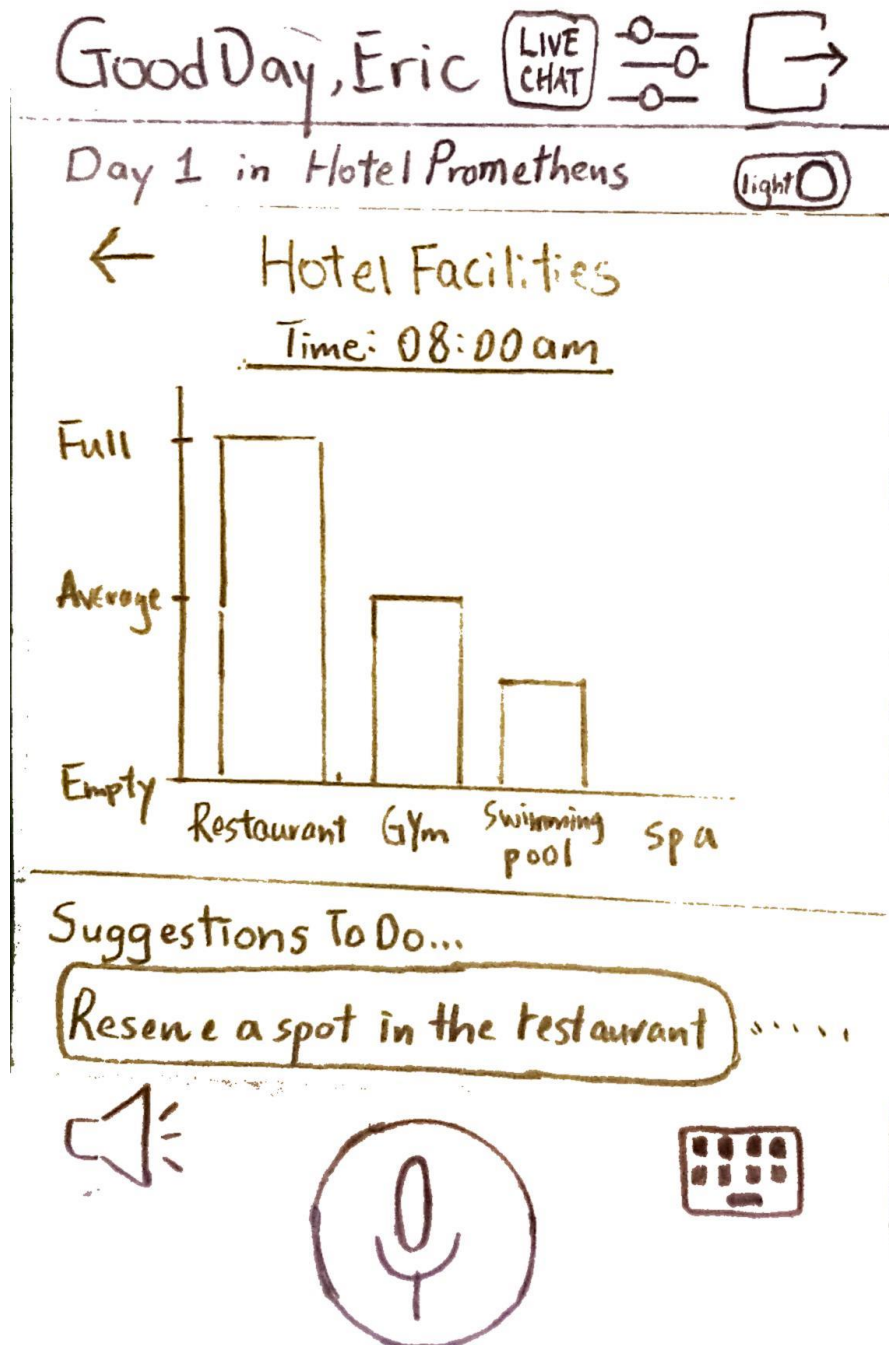 Good Day, Eric
LIVE
CHAT
Day 1 in Hotel Promethens
light
Hotel Facilities
Time: 08:00 am
Full
Average
Empty
Restaurant GYm Swimming pool Spa
Suggestions To Do...
Reserve a spot in the restaurant